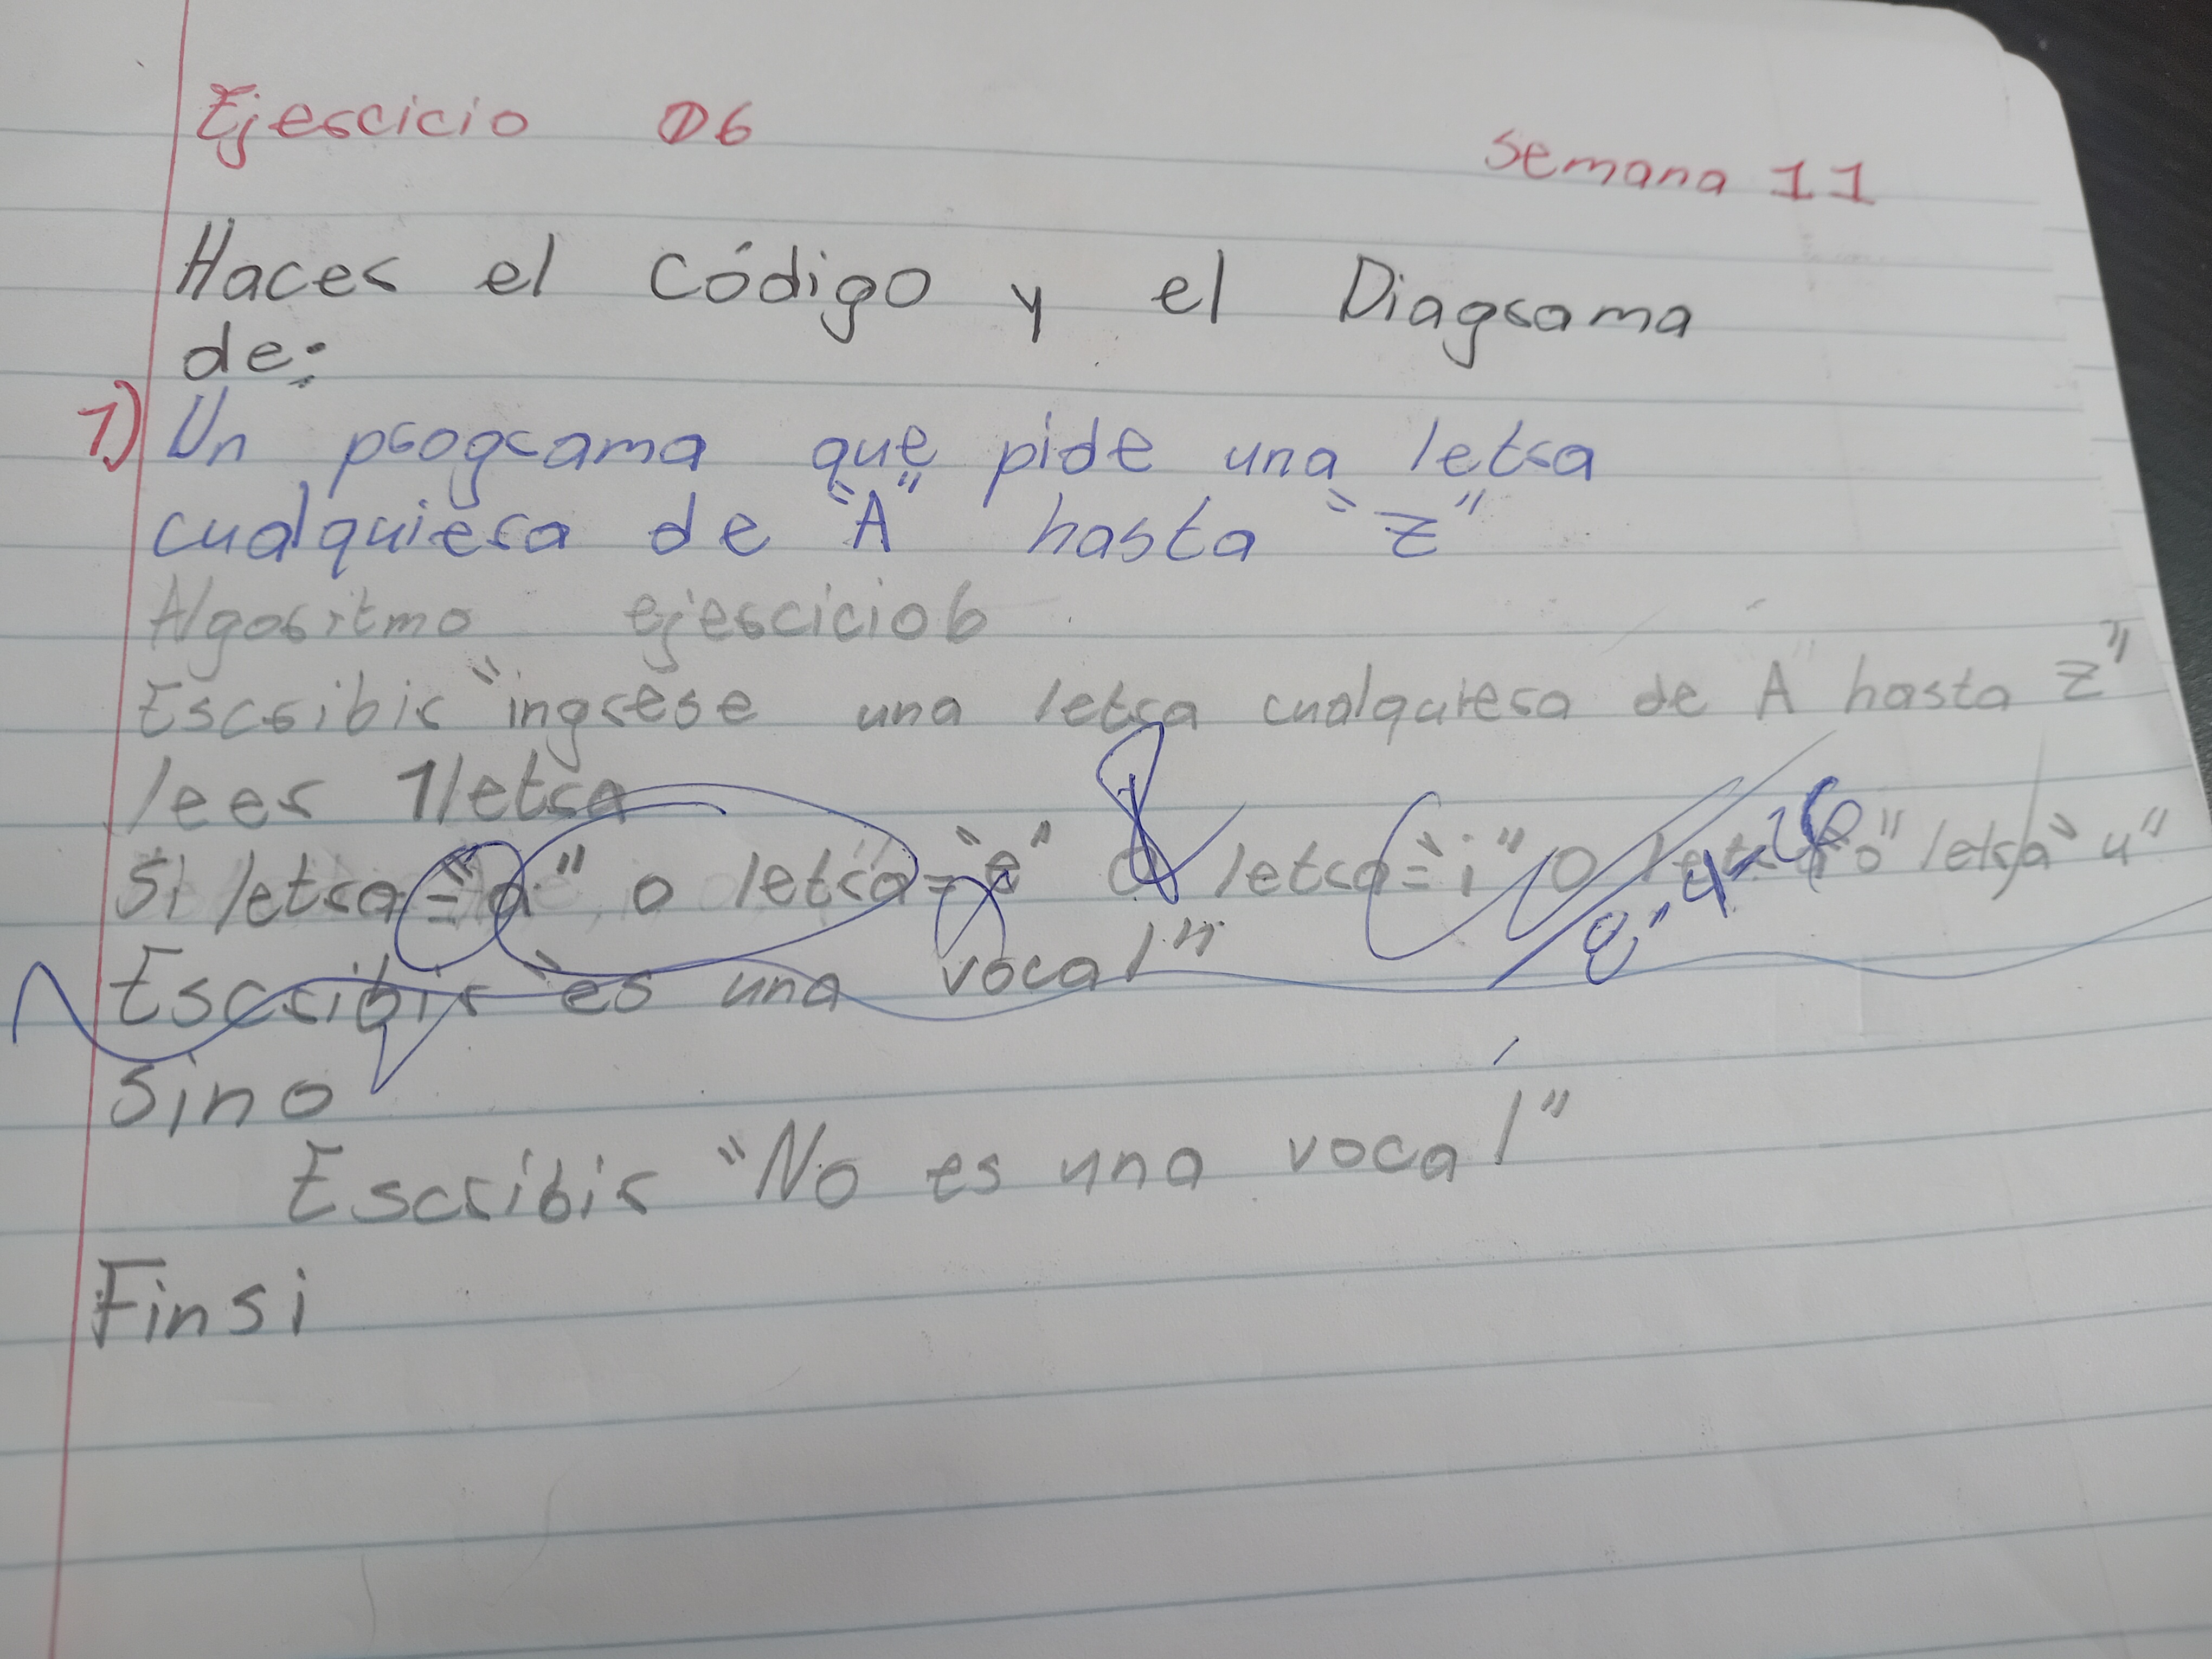 Ejercicio 06
Semana 11
Hacer el Código y el Diagrama
de:
1) Un programa que pide una letra
cualquiera de "A" hasta "Z"
Algoritmo ejercicio6
Escribir "ingrese una letra cualquiera de A hasta Z"
leer 1letra
Si letra="a" o letra="e" o letra="i" o "o" letra "u"
Escribir "es una vocal"
Sino
Escribir "No es una vocal"
Finsi